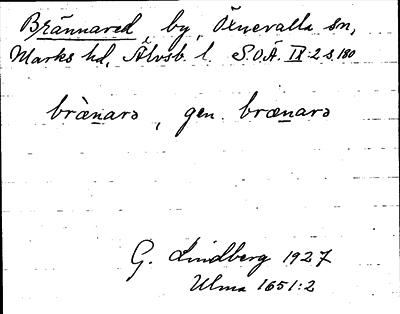 Brännared, by, Öxnevalla sn,
Marks hd, Älvsb. l. S.O.Ä. IX:2 s. 180
brænarə, gen. brænarə
G. Lindberg 1927
Ulma 1651:2